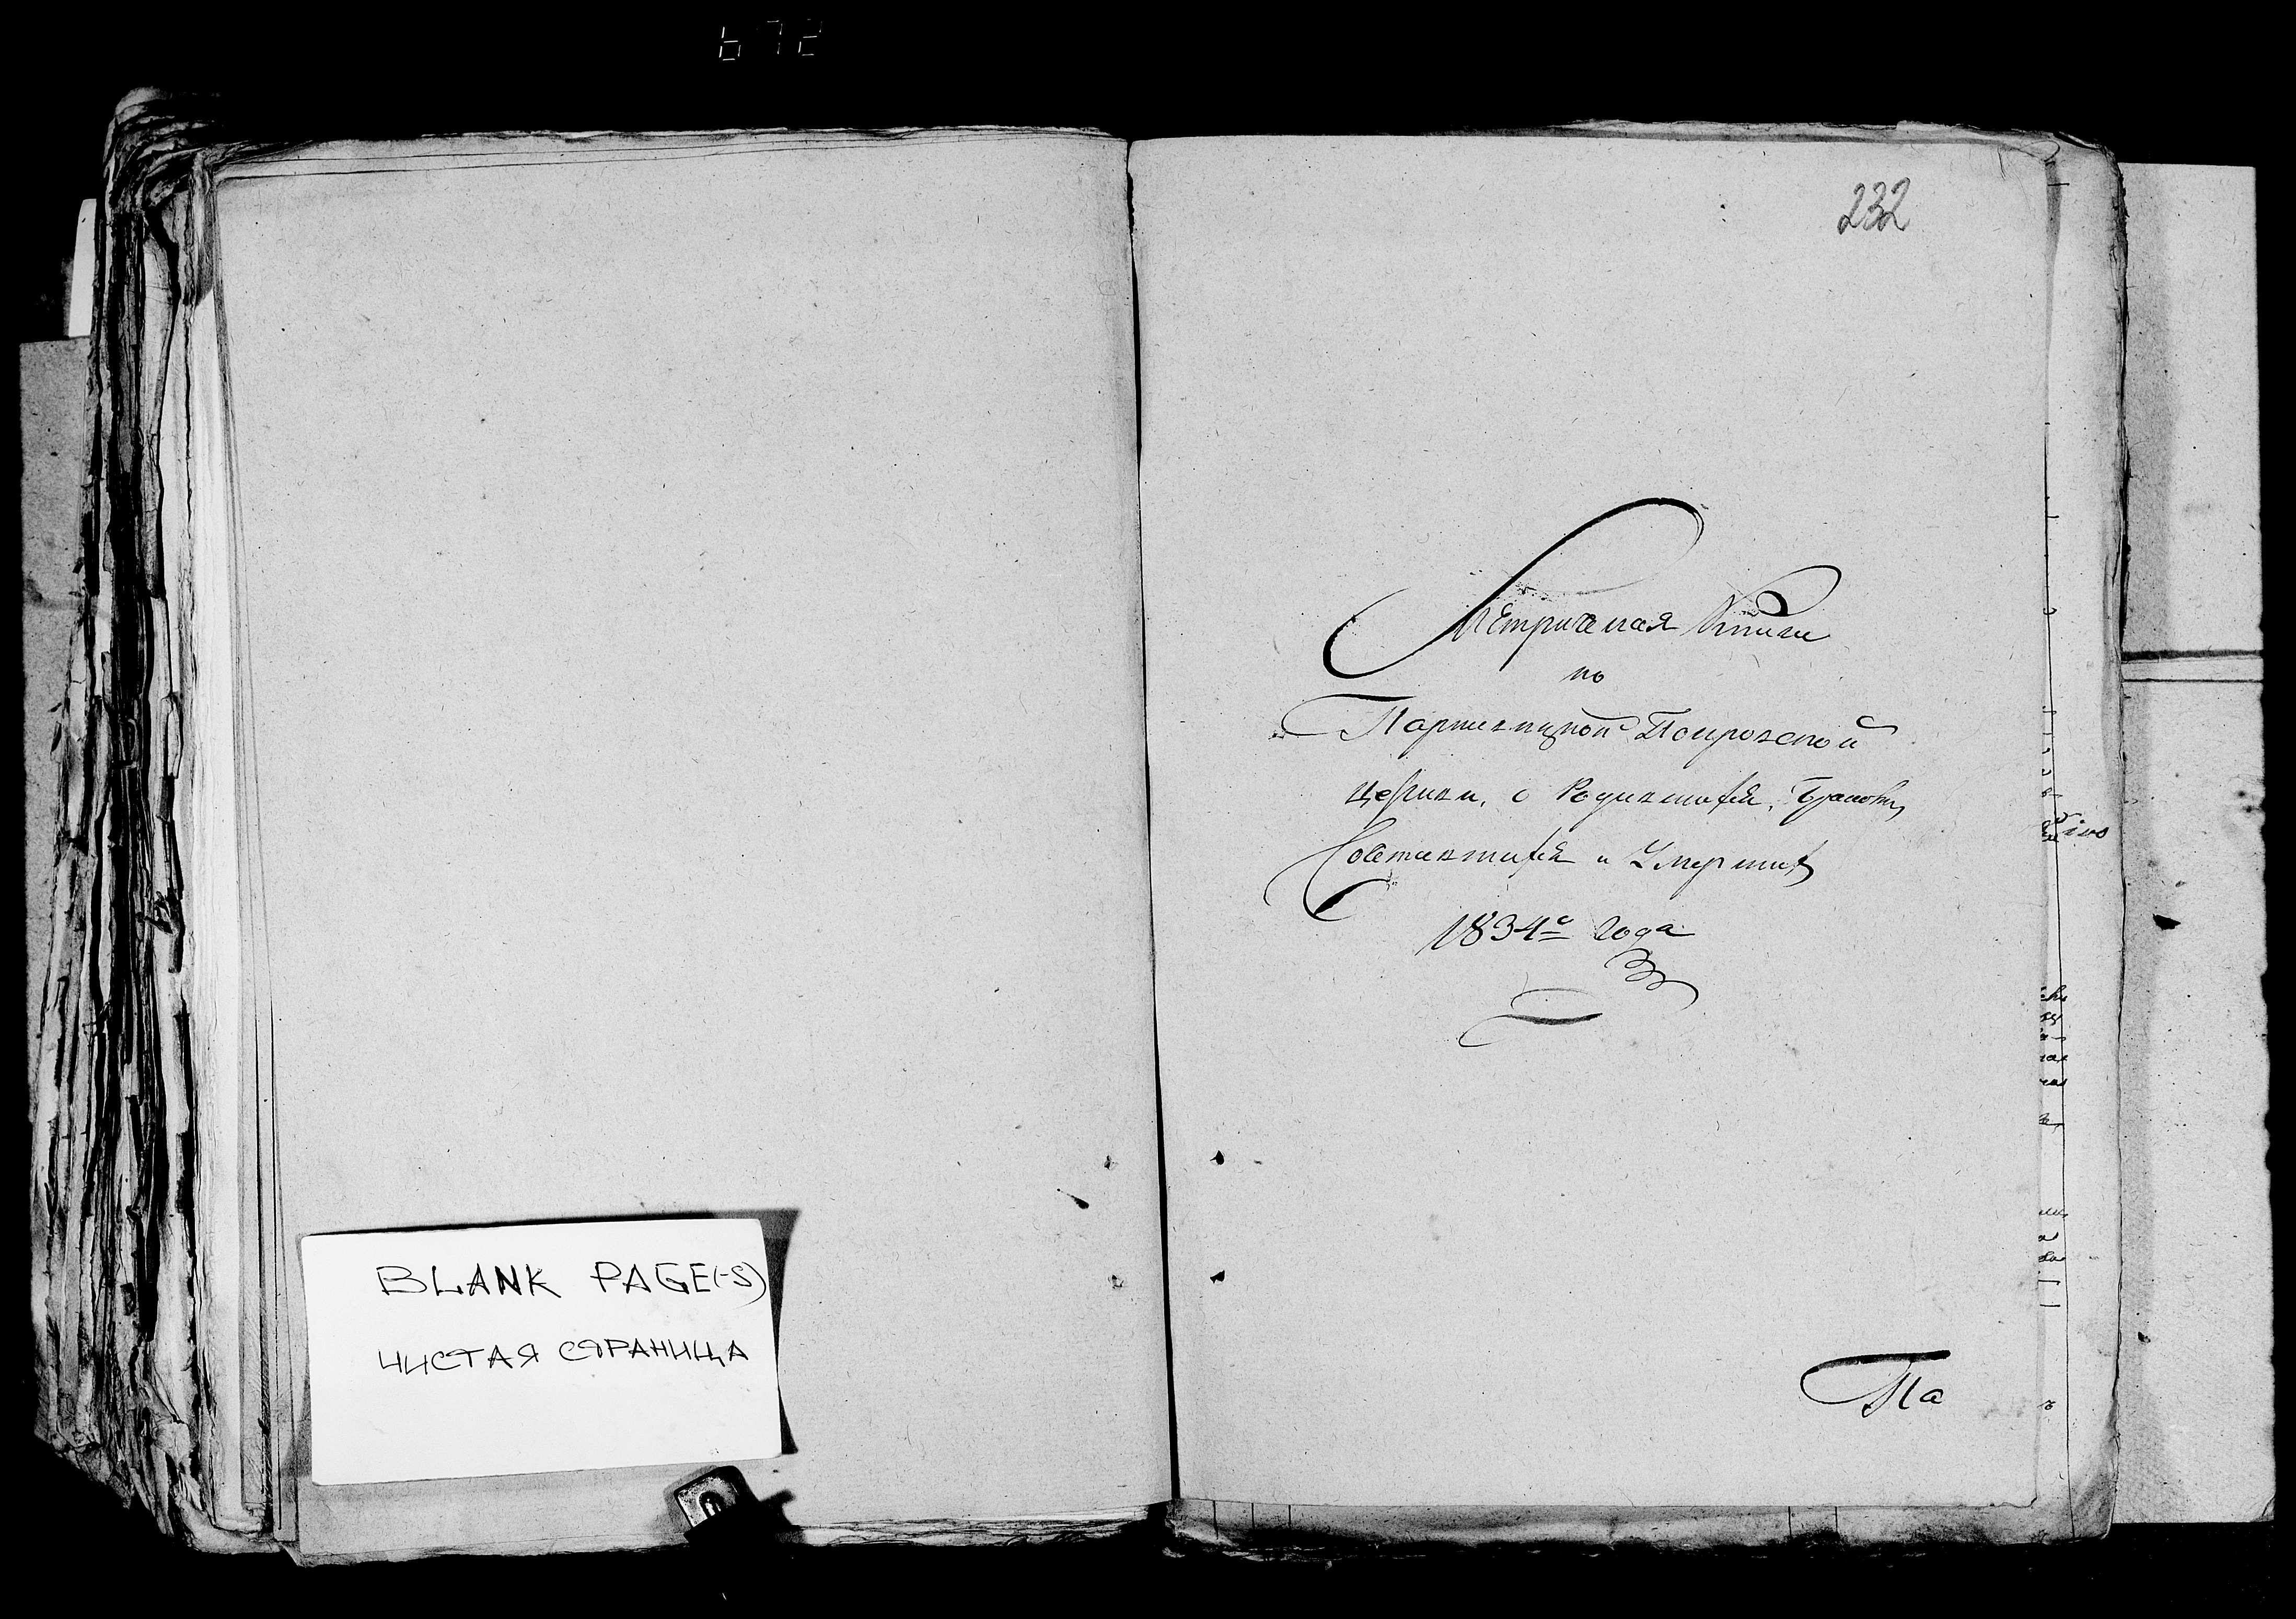 672
232
Метрическая Книга
по
Покровской
церкви, о Родившихся, Браком
Сочетавшихся и Умерших
1834го года
BLANK PAGE(-S)
ЧИСТАЯ СТРАНИЦА
Па